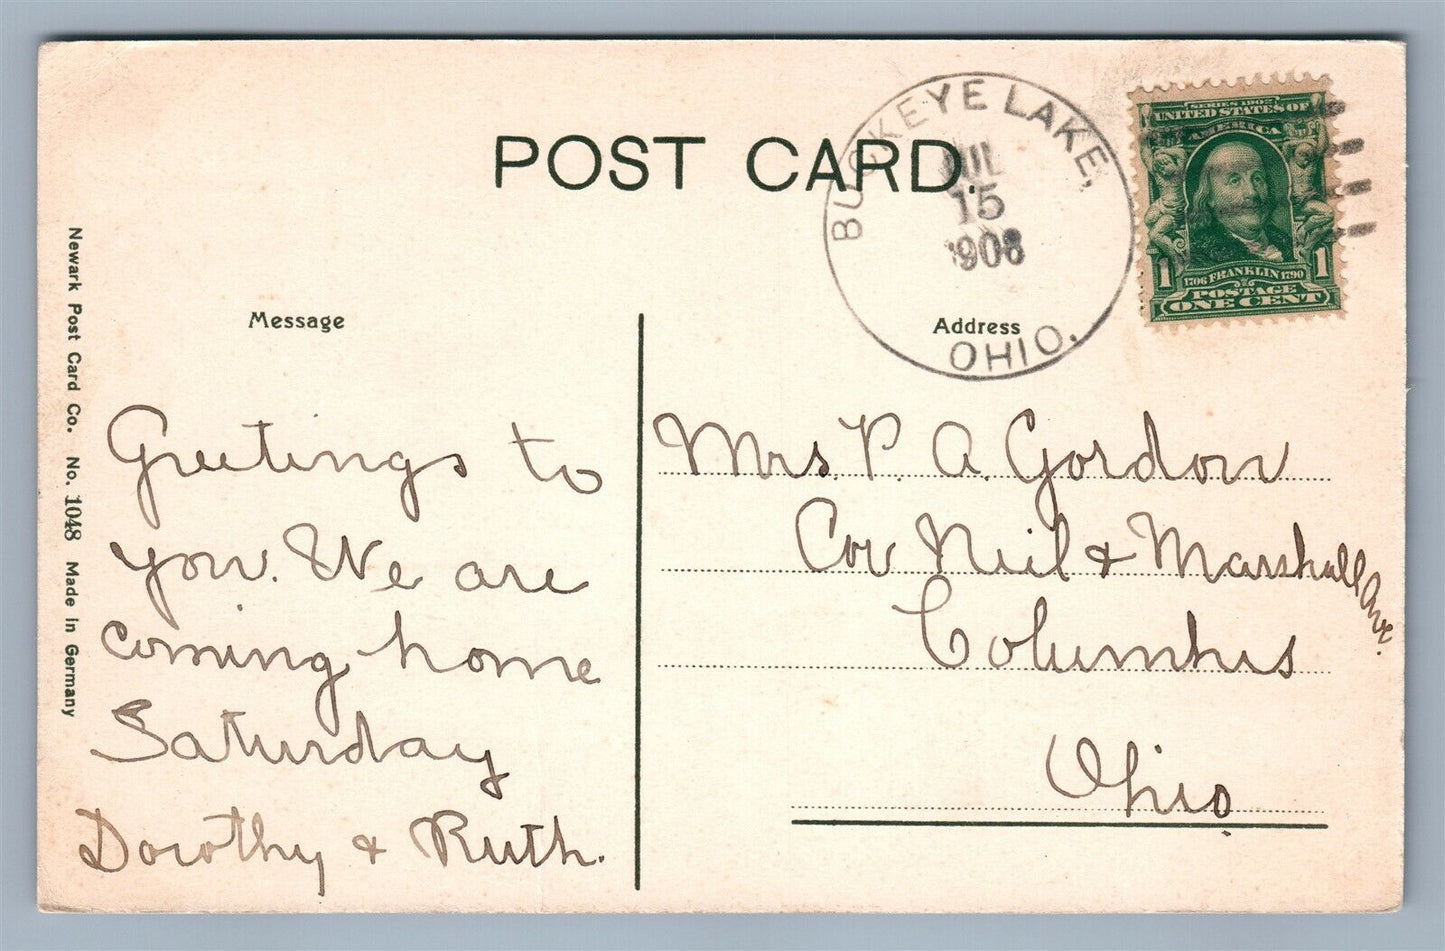 POST CARD.
BUCKEYE LAKE,
JUL
15
1908
OHIO.
SERIES 1902
UNITED STATES OF
AMERICA
1 1706 FRANKLIN 1790 1
POSTAGE
ONE CENT
Newark Post Card Co. No. 1048 Made in Germany
Message
Greetings to
you. We are
coming home
Saturday
Dorothy & Ruth.
Address
Mrs. P. A. Gordon
Cor Neil & Marshall Ave.
Columbus
Ohio